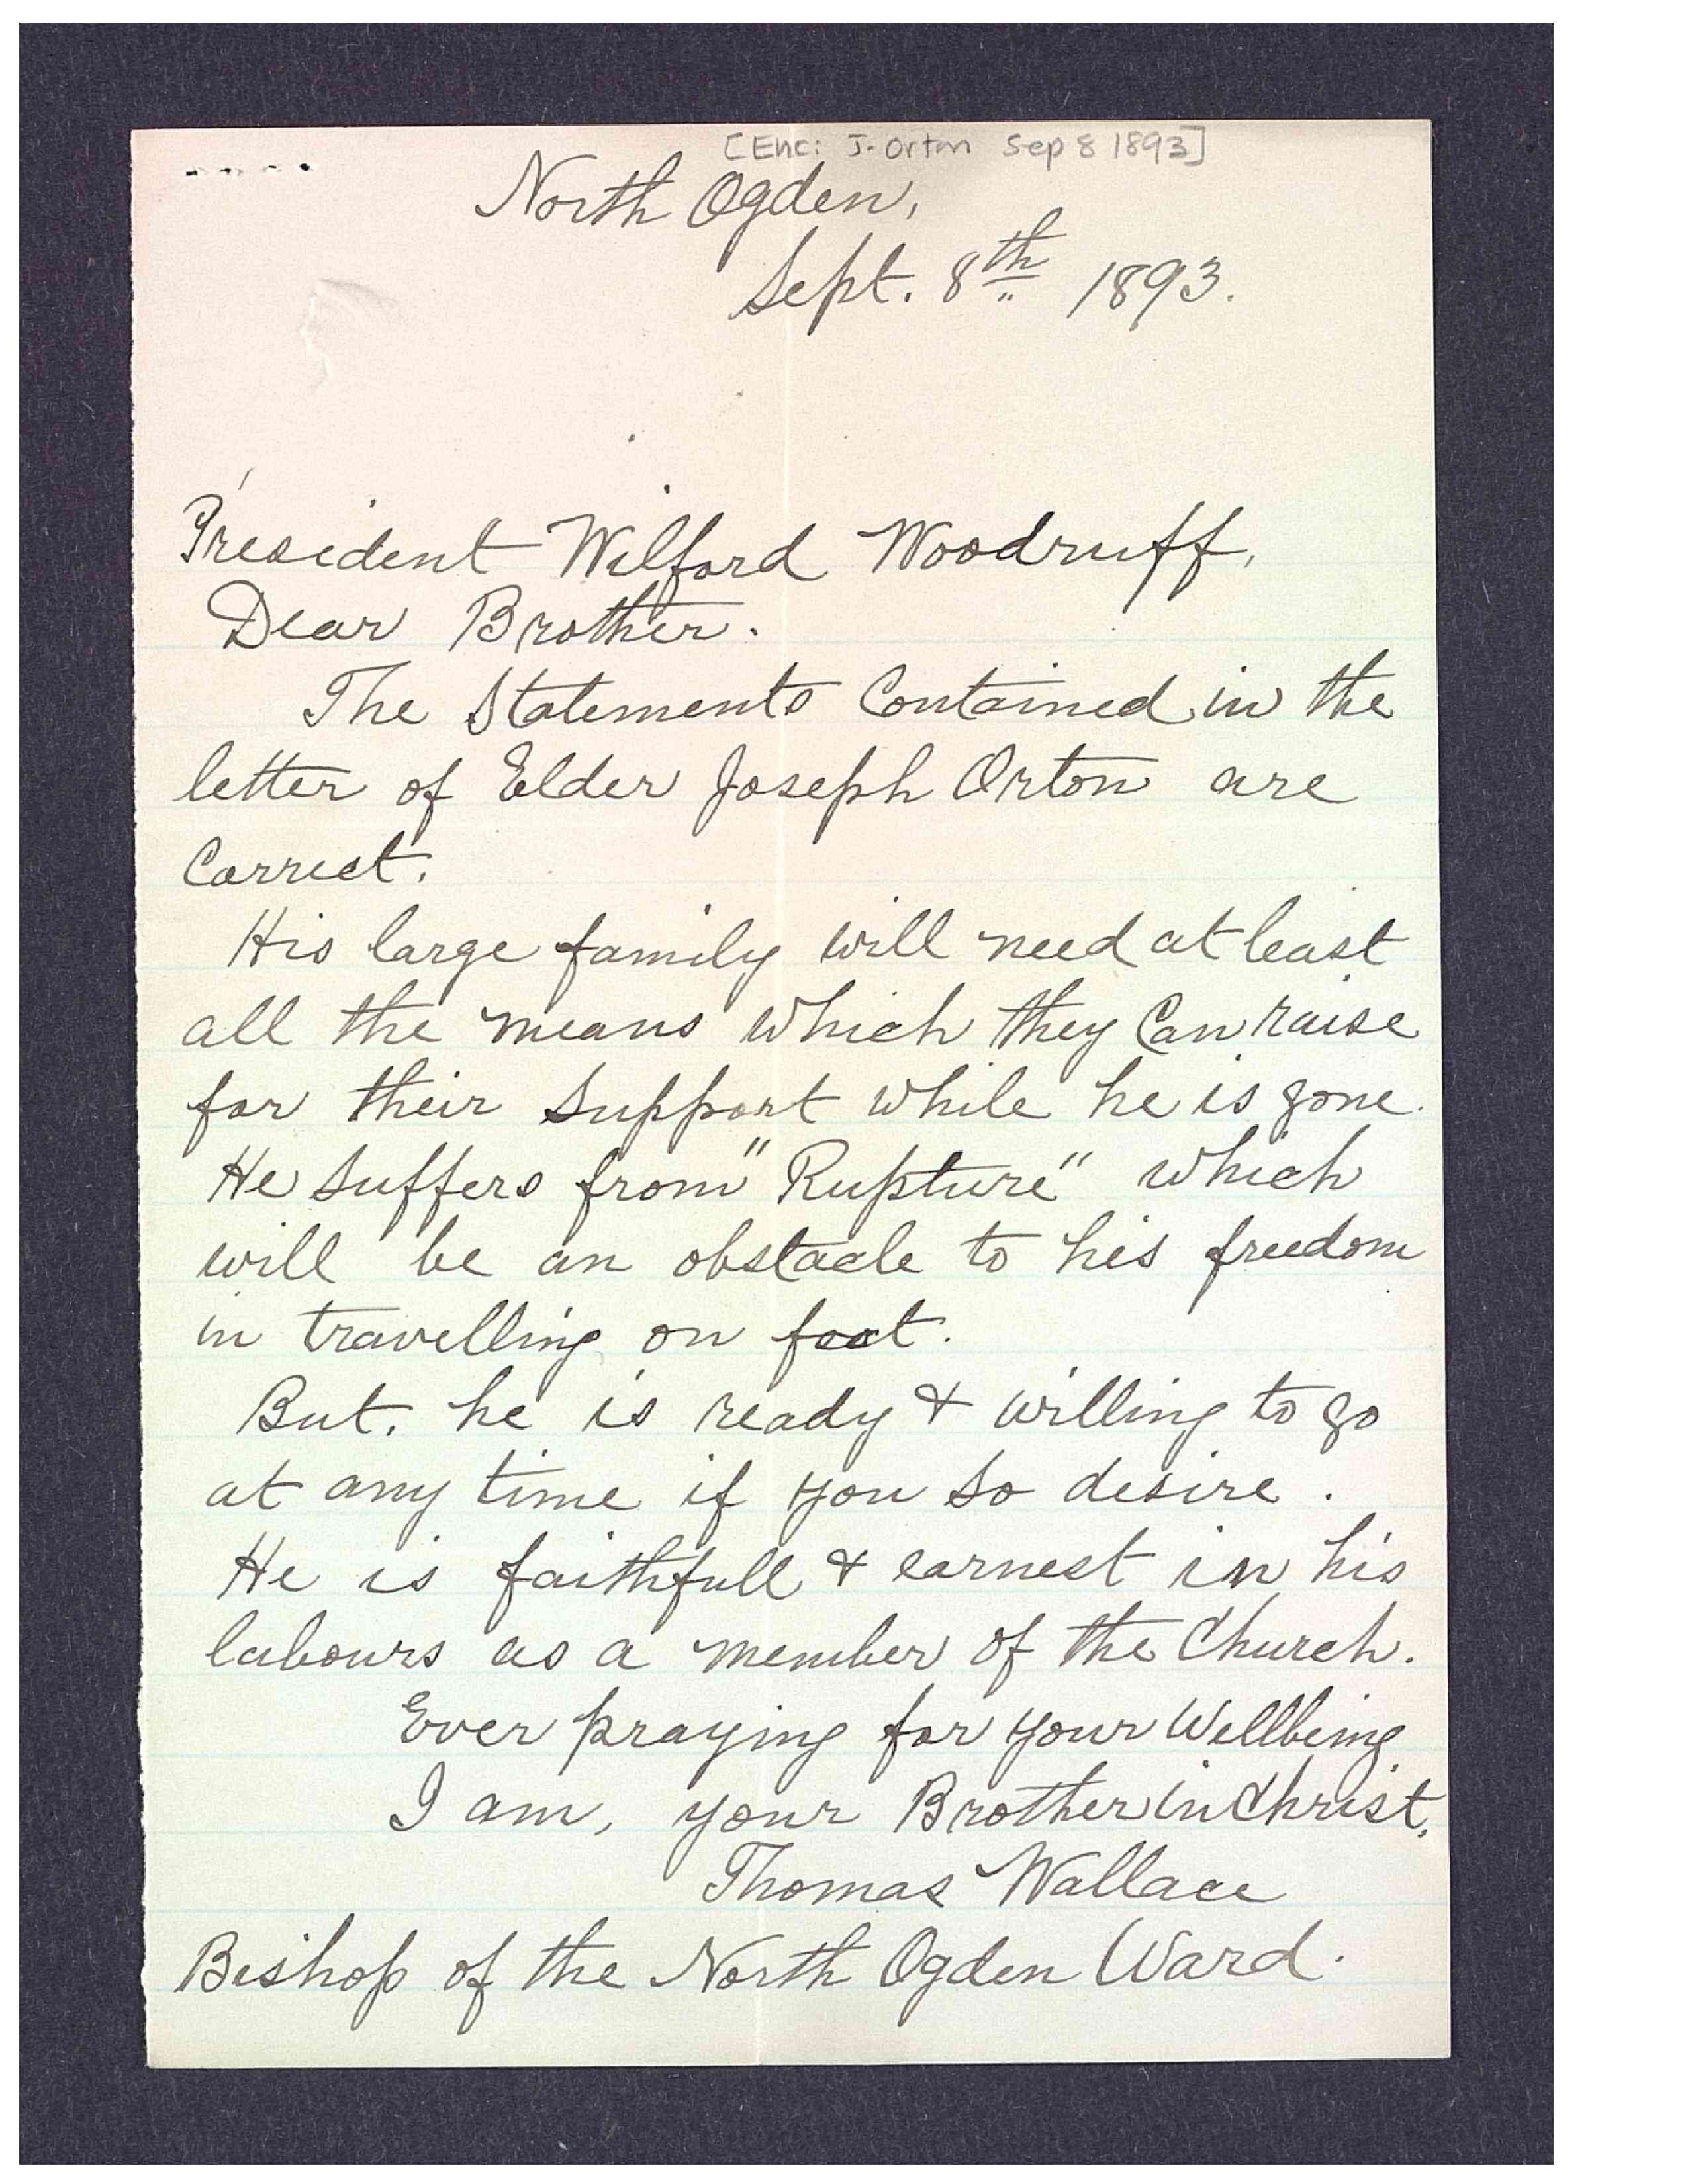 [Enc: J. Orton Sep 8 1893]
North Ogden,
Sept. 8th 1893.
President Wilford Woodruff,
Dear Brother.
The Statements Contained in the
letter of Elder Joseph Orton are
Correct.
His large family will need at least
all the means which they Can raise
for their Support while he is gone.
He Suffers from "Rupture" which
will be an obstacle to his freedom
in travelling on foot.
But, he is ready & willing to go
at any time if you so desire.
He is faithfull & earnest in his
labours as a member of the Church.
Ever praying for your Wellbeing
I am, your Brother in Christ,
Thomas Wallace
Bishop of the North Ogden Ward.